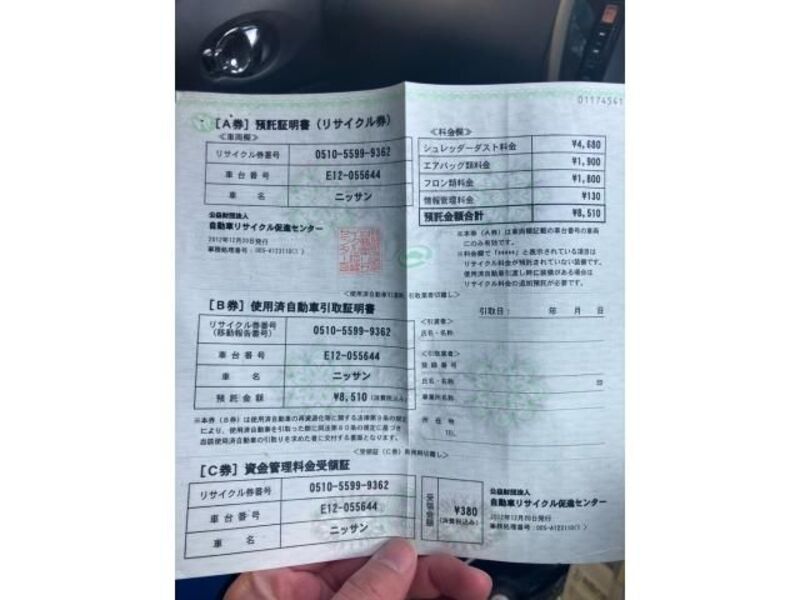 01174541
[A券] 預託証明書(リサイクル券)
<車両欄>
リサイクル券番号 0510-5599-9362
車台番号 E12-055644
車名 ニッサン
公益財団法人
自動車リサイクル促進センター
2012年12月20日発行
<料金欄>
シュレッダーダスト料金 ¥4,680
エアバッグ類料金 ¥1,900
フロン類料金 ¥1,800
情報管理料金 ¥130
預託金額合計 ¥8,510
※本券(A券)は車両欄記載の車台番号の車両
にのみ有効です。
※料金欄で「*****」と表示されている項目は
リサイクル料金が預託されていない装備です。
使用済自動車引渡し時に装備がある場合は
リサイクル料金の追加預託が必要です。
[B券] 使用済自動車引取証明書
リサイクル券番号
(移動報告番号) 0510-5599-9362
車台番号 E12-055644
車名 ニッサン
預託金額 ¥8,510(消費税込み)
引取日: 年 月 日
<引渡者>
氏名・名称
<引取業者>
登録番号
氏名・名称 印
事業所名称
所在地
TEL
※本券(B券)は使用済自動車の再資源化等に関する法律第9条の規定
により、使用済自動車を引取った際に同法第80条の規定に基づき
当該使用済自動車の引取りを求めた者に交付する書面となります。
[C券] 資金管理料金受領証
リサイクル券番号 0510-5599-9362
車台番号 E12-055644
車名 ニッサン
受領金額 ¥380
(消費税込み)
公益財団法人
自動車リサイクル促進センター
2012年12月20日発行